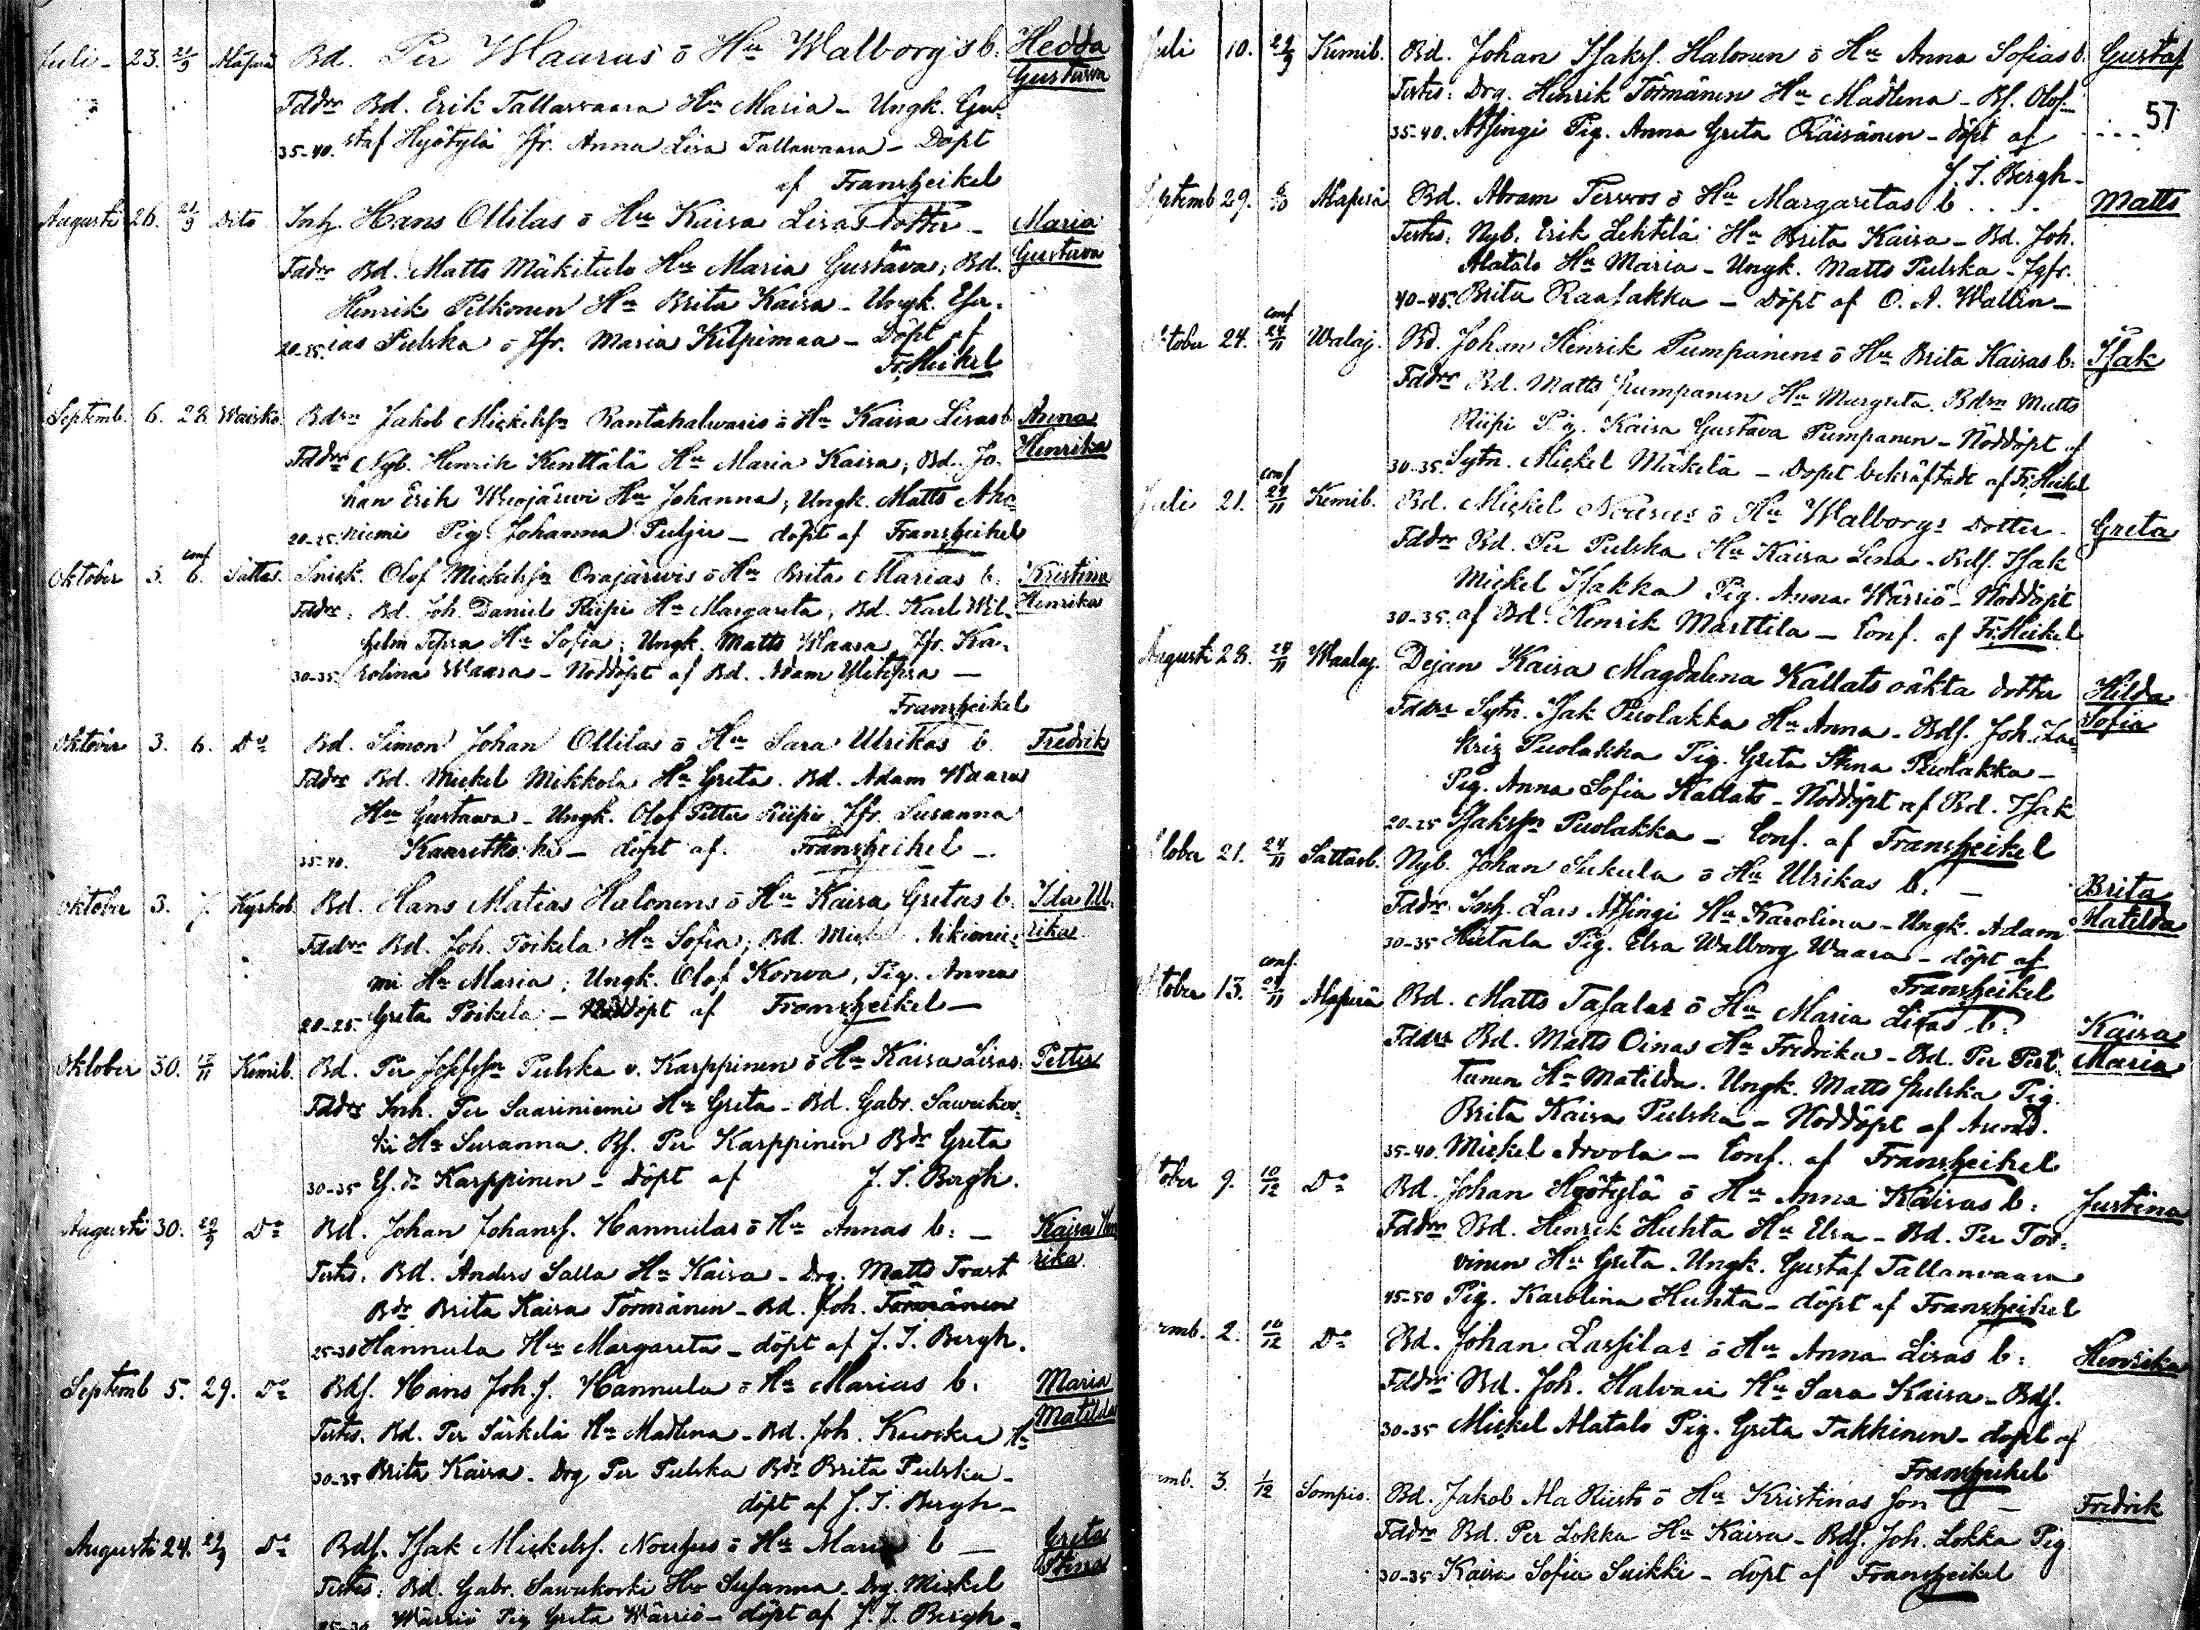 Juli 23. 21/9 Alaperä Bd. Per Waaras ö Hu Walborgs b. Hedda
Gustava
Fddrr Bd. Erik Tallavaara Hu Maria – Ungk. Gu-
35-40. staf Hyötylä Jfr. Anna Lisa Tallawaara – Döpt
af Franzheikel
Augusti 26. 21/9 Dito Inh. Hans Ollilas ö Hu Kaisa Lisas dotter – Maria
Fddrr Bd. Matts Mäkitalo Hu Maria Gustava, Bd. Gustava
Henrik Pelkonen Hu Brita Kaisa – Ungk. Esa-
20-25. ias Pulska ö Jfr. Maria Kilpimaa – Döpt af
Fr. Heikel
Septemb. 6. 28. Waisko. Bdsn Jakob Mickelsn Rantahalwaris ö Hu Kaisa Lisas b. Anna
Fddrr Nyb. Henrik Kenttälä Hu Maria Kaisa, Bd. Jo- Henrika
han Erik Wuojärwi Hu Johanna, Ungk. Matts Aho-
20-25. niemi Pig. Johanna Pulju – döpt af Franzheikel
conf
Oktober 3. 6. Sattas. Snick. Olof Mickelsn Orajärwis ö Hu Brita Marias b. Kristina
Fddrr. Bd. Joh. Daniel Riipi Hu Margareta, Bd. Karl Wil- Henrika
helm Tepsa Hu Sofia, Ungk. Matts Waara, Jfr. Ka-
30-35. rolina Waara – Nöddöpt af Bd. Adam Ylitepsa –
Franzheikel
Oktober 3. 6. Do Bd. Simon Johan Ollilas ö Hu Sara Ulrikas b. Fredrik
Fddrr Bd. Mickel Mikkola Hu Greta. Bd. Adam Waara
Hu Gustawa – Ungk. Olof Petter Riipi Jfr. Susanna
35-40. Kaaretkoski – döpt af Franzheikel –
Oktober 3. 7. Kyrkob. Bd. Hans Matias Halonens ö Hu Kaisa Gretas b. Ida Ul-
Fddrr Bd. Joh. Poikela Hu Sofia, Bd. Mick. Aikionie- rika
mi Hu Maria, Ungk. Olof Korwa, Pig. Anna
20-25. Greta Poikela – döpt af Franzheikel –
Oktober 30. 17/11 Kemib. Bd. Per Josefsn Pulska v. Karppinen ö Hu Kaisa Lisas. Petter
Fddrr Inh. Per Saariniemi Hu Greta – Bd. Gabr. Sawukos-
ki Hu Susanna. Bs. Per Karppinen Bdr Greta
30-35 Ef. dr Karppinen – Döpt af J. T. Bergh.
Augusti 30. 29/9 Do Bd. Johan Johansf. Hannulas ö Hu Annas b: – Kaisa Hen
Testes. Bd. Anders Salla Hu Kaisa – Drg. Matts Trast rika
Bdr Brita Kaisa Törmänen – Bd. Joh. Törmänen
25-30 Hannula Hu Margareta – döpt af J. T. Bergh.
Septemb 5. 29. Do Bds. Hans Joh. s. Hannula ö Hu Marias b. Maria
Testes. Bd. Per Särkelä Hu Madlena – Bd. Joh. Kuoska Hu Matilda
30-35 Brita Kaisa. Drg Per Pulska Bdr Brita Pulska –
döpt af J. T. Bergh –
Augusti 24. 29/9 Do Bds. Isak Mickelsf. Nousus ö Hu Maria b – Greta
Testes. Bd. Gabr. Sawukoski Hu Susanna – Drg. Mickel Stina
Wärriö Pig Greta Wärriö – döpt af J. T. Bergh.
Juli 10. 29/9 Kemib. Bd. Johan Isaksf. Halonen ö Hu Anna Sofias b. Gustaf
Testes: Drg. Henrik Törmänen Hu Madlena – Bs. Olof 57
35-40. Atsingi Pig. Anna Greta Räisänen – döpt af
J. T. Bergh –
Septemb 29. 6/10 Alaperä Bd. Abram Perwos ö Hu Margaretas b Matts
Testes: Nyb. Erik Lehtelä Hu Brita Kaisa – Bd. Joh.
Alatalo Hu Maria – Ungk. Matts Pulska – Jgfr.
40-45. Brita Raasakka – Döpt af O. A. Wallin –
conf
ctober 24. 24/11 Walaj. Bd. Johan Henrik Pumpanens ö Hu Brita Kaisas b. Isak
Fddrr Bd. Matts Pumpanen Hu Margreta. Bdsn Matts
Riipi Pig. Kaisa Gustava Pumpanen – Nöddöpt af
30-35. Sytn. Mickel Mäkelä – Döpt bekräftadt af Fr. Heikel
conf
Juli 21. 24/11 Kemib. Bd. Mickel Nousus ö Hu Walborgs dotter. Greta
Fddrr Bd. Per Pulska Hu Kaisa Lena – Bds. Isak
Mickel Isakka Pig. Anna Wärriö – Nöddöpt
30-35. af Bd. Henrik Marttila – Conf. af Fr. Heikel
Augusti 28. 24/11 Waalaj. Dejan Kaisa Magdalena Kallats oäkta dotter Hilda
Fddrr Sytn. Isak Puolakka Hu Anna – Bds. Joh. La- Sofia
kriz Puolakka Pig. Greta Stina Puolakka –
Pig. Anna Sofia Kallats – Nöddöpt af Bd. Isak
20-25 Isaksn Puolakka – Conf. af Franzheikel
tober 21. 24/11 Sattasb. Nyb. Johan Sukula ö Hu Ulrikas b. – Brita
Fddrr. Inh. Lars Atsingi Hu Karolina – Ungk. Adam Matilda
30-35 Hietala Pig. Elsa Walborg Waara – döpt af
Franzheikel
conf.
tober 13. 24/11 Alaperä Bd. Matts Tasalas ö Hu Maria Lisas b. Kaisa
Fddrr Bd. Matts Oinas Hu Fredrika – Bd. Per Pert- Maria
tunen Hu Matilda. Ungk. Matts Pulska Pig.
Brita Kaisa Pulska – Nöddöpt af Arend.
35-40. Mickel Arvola – Conf. af Franzheikel
tober 9. 10/12 Do Bd. Johan Hyötylä ö Hu Anna Kaisas b: Justina
Fddrr Bd. Henrik Huhta Hu Elsa – Bd. Per Tor-
vinen Hu Greta – Ungk. Gustaf Tallanvaara
45-50 Pig. Karolina Huhta – döpt af Franzheikel
emb. 2. 10/12 Do Bd. Johan Lassilas ö Hu Anna Lisas b: Henrika
Fddrr Bd. Joh. Halvari Hu Sara Kaisa – Bds.
30-35 Mickel Alatalo Pig. Greta Takkinen – döpt af
Franzheikel
emb. 3. 1/12 Sompio. Bd. Jakob Ala Riesto ö Hu Kristinas son – Fredrik
Fddrr Bd. Per Lokka Hu Kaisa – Bds. Joh. Lokka Pig
30-35 Kaisa Sofia Suikki – döpt af Franzheikel